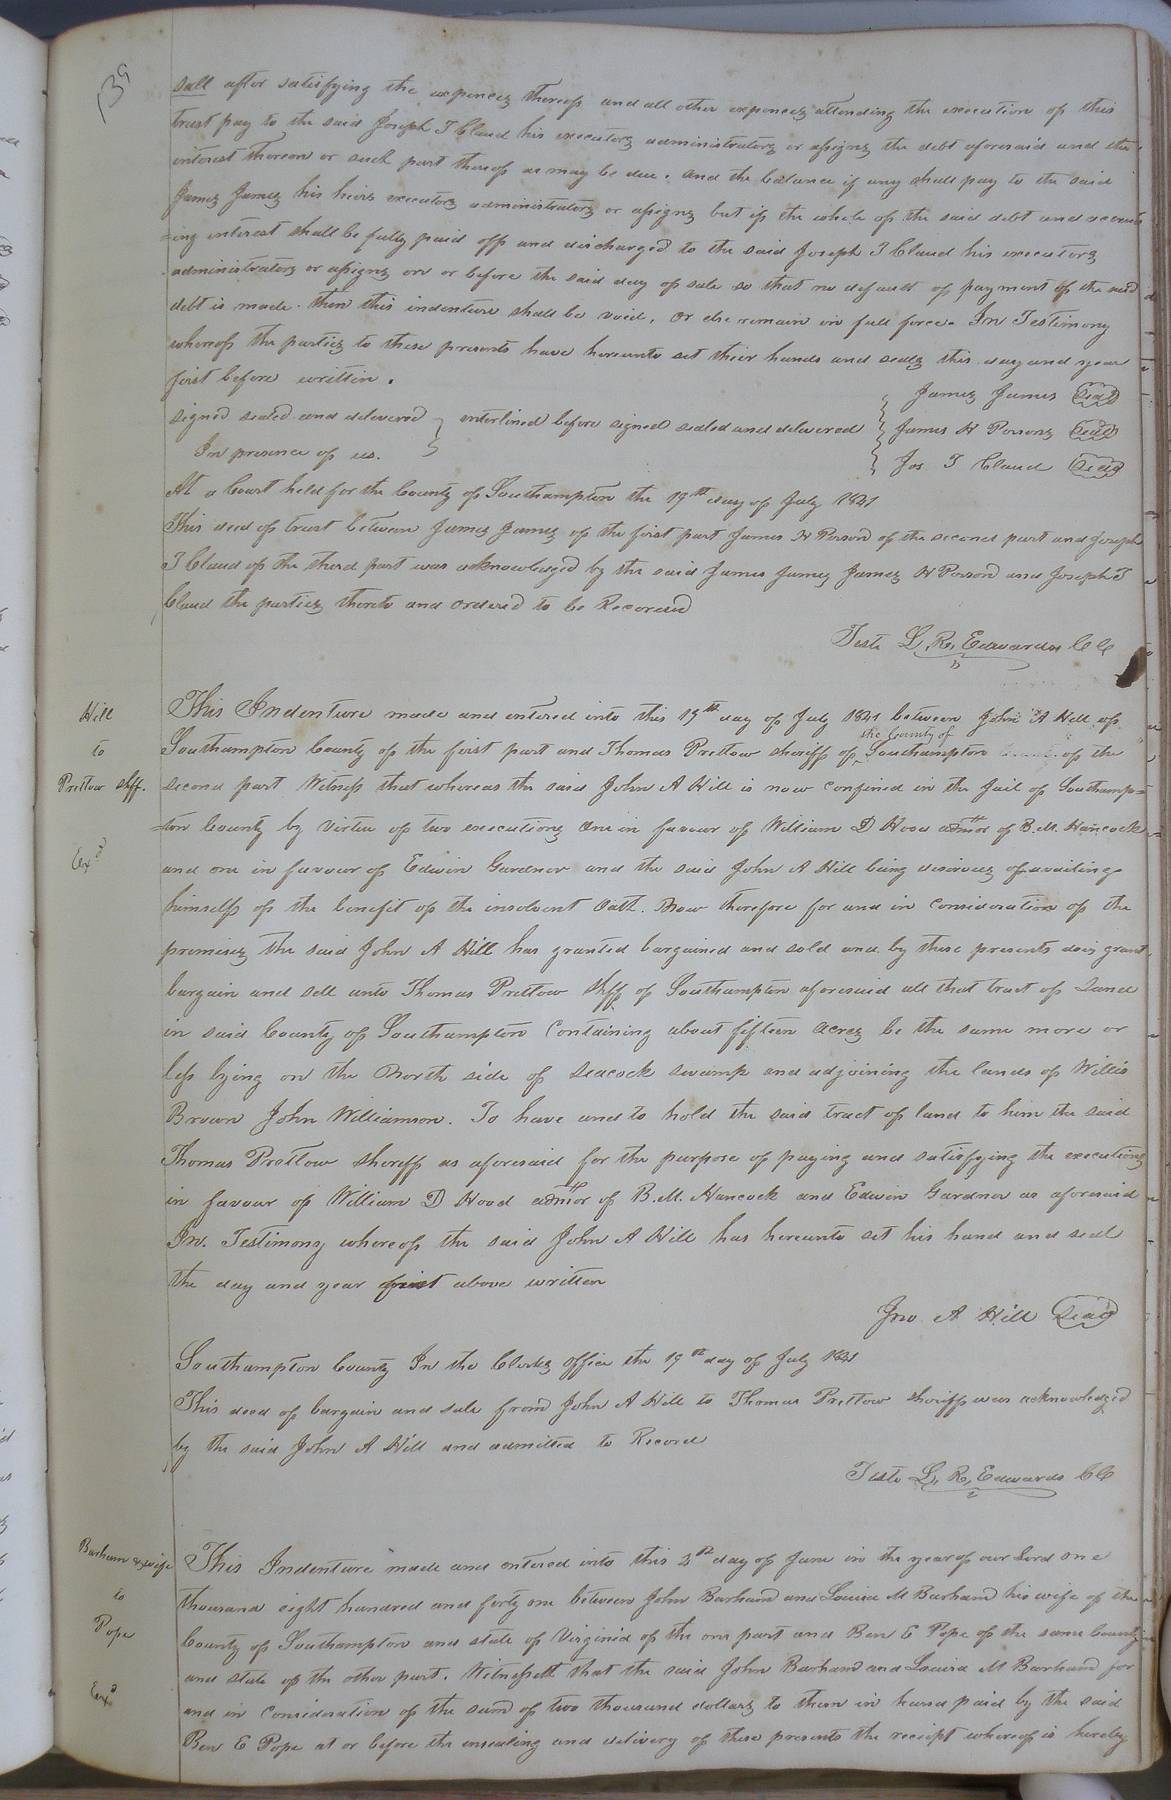 139
sall after satisfying the expences thereof and all other expences attending the execution of this
trust pay to the said Joseph T Claud his executors administrators or assigns the debt aforesaid and the
interest thereon or such part thereof as may be due. and the balance if any shall pay to the said
James James his heirs executors administrators or assigns but if the whole of the said debt and accru
=ing interest shall be fully paid off and discharged to the said Joseph T Claud his executors
administrators or assigns on or before the said day of sale so that no default of payment of the said
debt is made. then this indenture shall be void, or else remain in full force. In Testimony
whereof the parties to these presents have hereunto set their hands and seals this day and year
first before written.
James James Seal
signed sealed and delivered } enterlined before signed sealed and delivered } James H Persons Seal
In presence of us.
Jos T Claud Seal
At a Court held for the County of Southampton the 19th day of July 1841
This deed of trust between James James of the first part James H Person of the second part and Joseph
T Claud of the third part was acknowledged by the said James James James H Person and Joseph T
Claud the parties thereto and ordered to be Recorded
Teste L. R. Edwards CC
Hill
to
Pretlow Shff.
Exd
This Indenture made and entered into this 19th day of July 1841 between John A Hill of
Southampton County of the first part and Thomas Pretlow sheriff of the County of Southampton of the
second part Witness that whereas the said John A Hill is now confined in the Jail of Southamp=
=ton County by virtue of two executions One in favour of William D Hood admor of B. M. Hancock
and one in favour of Edwin Gardner and the said John A Hill being desirous of availing
himself of the benefit of the insolvent Oath. Now therefore for and in consideration of the
premises the said John A Hill has granted bargained and sold and by these presents does grant
bargain and sell unto Thomas Pretlow Shff of Southampton aforesaid all that tract of Land
in said County of Southampton Containing about fifteen Acres be the same more or
less lying on the North side of Seacock swamp and adjoining the lands of Willis
Brown John Williamson. To have and to hold the said tract of land to him the said
Thomas Pretlow sheriff as aforesaid for the purpose of paying and satisfying the executions
in favour of William D Hood admor of B. M. Hancock and Edwin Gardner as aforesaid
In. Testimony whereof the said John A Hill has hereunto set his hand and seal
the day and year first above written
Jno A Hill Seal
Southampton County In the Clerks office the 19th day of July 1841
This deed of bargain and sale from John A Hill to Thomas Pretlow sheriff was acknowledged
by the said John A Hill and admitted to Record
Teste L. R. Edwards CC
Barham & wife
to
Pope
Exd
This Indenture made and entered into this 2nd day of June in the year of our Lord one
thousand eight hundred and forty one between John Barham and Louisa M Barham his wife of the
County of Southampton and state of Virginia of the one part and Ben E Pope of the same County
and state of the other part. Witnesseth that the said John Barham and Louisa M Barham for
and in consideration of the sum of two thousand dollars to them in hand paid by the said
Ben E Pope at or before the ensealing and delivery of these presents the receipt whereof is hereby